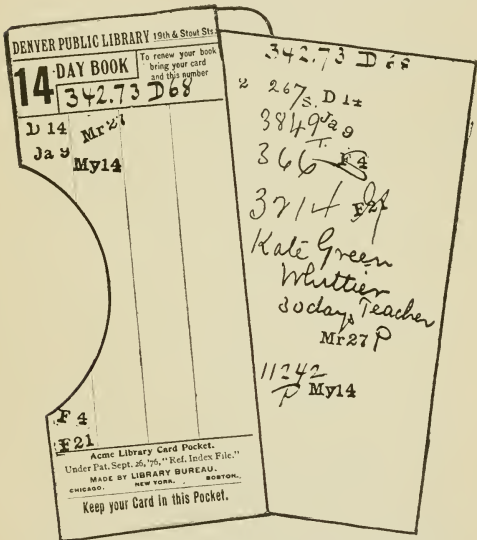 DENVER PUBLIC LIBRARY 19th & Stout Sts.
14 DAY BOOK
To renew your book
bring your card
and this number
342.73 D68
D 14 Mr27
Ja 9 My14
F 4
F21
Acme Library Card Pocket.
Under Pat. Sept. 26, '76, "Ref. Index File."
MADE BY LIBRARY BUREAU.
CHICAGO. NEW YORK. BOSTON.
Keep your Card in this Pocket.
342.73 D 68
2 267/S. D 14
3849 Ja 9
T.
366 F 4
3214 F21
Kate Green
Whittier
30 days Teacher
Mr27 P
11242
P My14